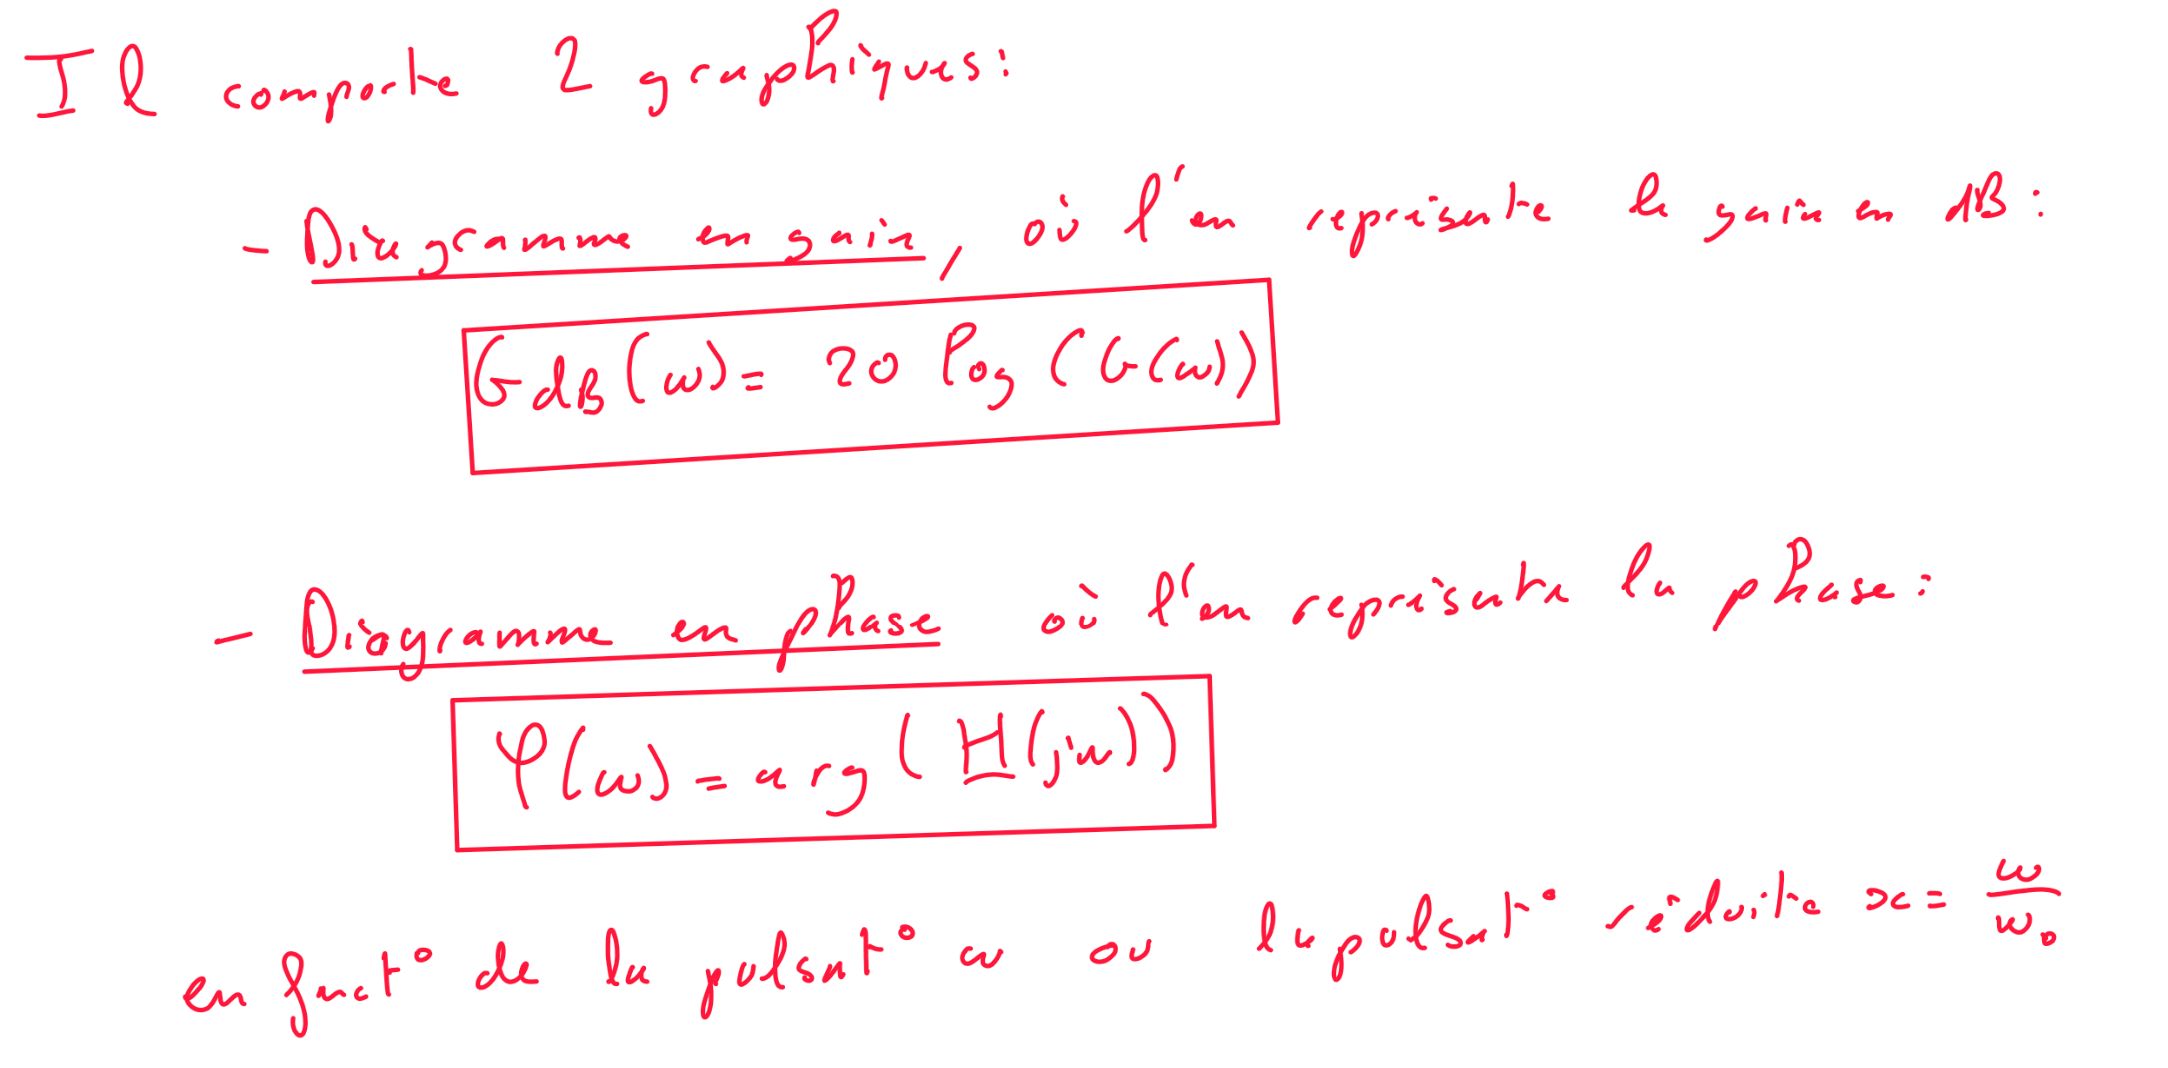 Il comporte 2 graphiques:
- Diagramme en gain, où l'on représente le gain en dB:
G_dB(ω) = 20 log (G(ω))
- Diagramme en phase où l'on représente la phase:
φ(ω) = arg (H(jω))
en fonct° de la pulsat° ω ou la pulsat° réduite x = ω/ω₀